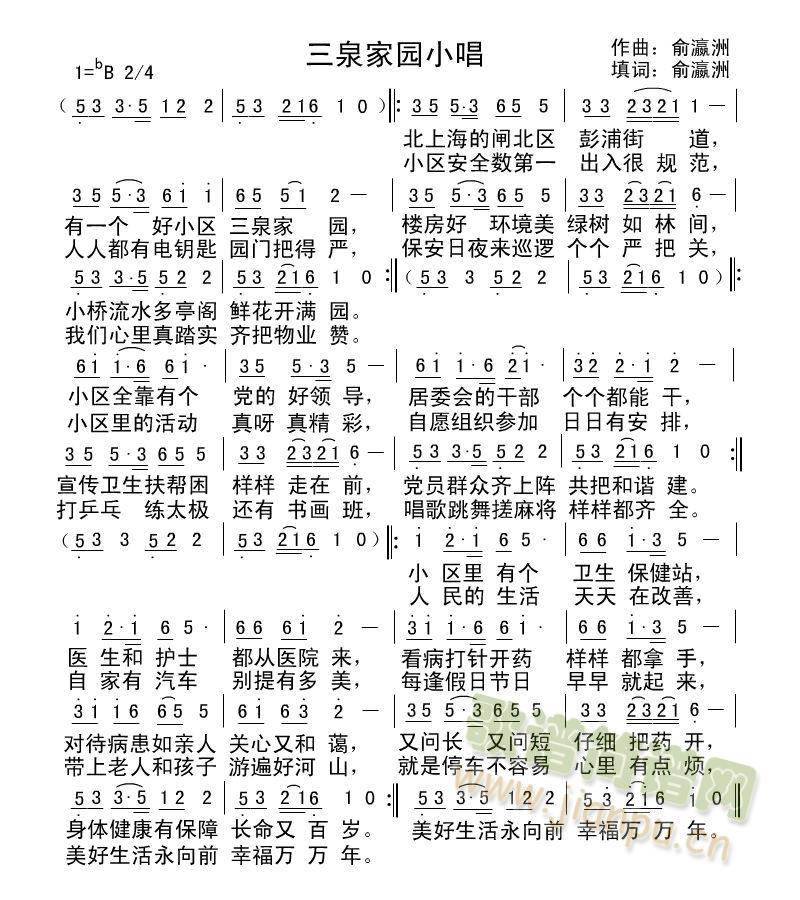 三泉家园小唱
作曲：俞瀛洲
1=bB 2/4
填词：俞瀛洲
（5 3 3·5 1 2 2 | 5 3 2 1 6 1 0）‖: 3 5 5·3 6 5 5 | 3 3 2 3 2 1 1 — |
北上海的闸北区 彭浦街 道，
小区安全数第一 出入很 规 范，
3 5 5·3 6 1 1 | 6 5 5 1 2 — | 3 5 5·3 6 5 5 | 3 3 2 3 2 1 6 — |
有一个 好小区 三泉家 园， 楼房好 环境美 绿树 如 林 间，
人人都有电钥匙 园门把得 严， 保安日夜来巡逻 个个 严 把 关，
5 3 2 3·5 5 2 2 | 5 3 2 1 6 1 0 :‖（5 3 3 5 2 2 | 5 3 2 1 6 1 0）‖:
小桥流水多亭阁 鲜花开满 园。
我们心里真踏实 齐把物业 赞。
6 1 1·6 6 1 · | 3 5 5·3 5 — | 6 1 1·6 2 2 | 3 2 2·1 2 — |
小区全靠有个 党的 好领 导， 居委会的干部 个个都能 干，
小区里的活动 真呀 真精 彩， 自愿组织参加 日日有安 排，
3 5 5·3 6 5 5 | 3 3 2 3 2 1 6 — | 5 3 3·5 5 2 2 | 5 3 2 1 6 1 0 :‖
宣传卫生扶帮困 样样 走在 前， 党员群众齐上阵 共把和谐 建。
打乒乓 练太极 还有 书画 班， 唱歌跳舞搓麻将 样样都齐 全。
（5 3 3 5 2 2 | 5 3 2 1 6 1 0）‖: 1 2·1 6 1 | 6 6 1·3 5 — |
小 区里 有个 卫生 保健站，
人 民的 生活 天天 在改善，
1 2·1 6 5 · | 6 6 6 1 2 — | 3 1 1·6 6 1 · | 6 6 1·3 5 — |
医 生和 护士 都从医院 来， 看病打针开药 样样 都拿 手，
自 家有 汽车 别提有多 美， 每逢假日节日 早早 就起 来，
3 1 1 6 6 5 5 | 6 1 6 3 2 — | 3 5 5·3 6 5 5 | 3 3 2 3 2 1 6 — |
对待病患如亲人 关心又和 蔼， 又问长 又问短 仔细 把药 开，
带上老人和孩子 游遍好河 山， 就是停车不容易 心里 有点 烦，
5 3 3·5 5 2 2 | 5 3 2 1 6 1 0 :‖ 5 3 3·5 1 2 2 | 5 3 2 1 6 1 0 ‖
身体健康有保障 长命又 百 岁。 美好生活永向前 幸福万 万 年。
美好生活永向前 幸福万 万 年。
www.jianpu.cn